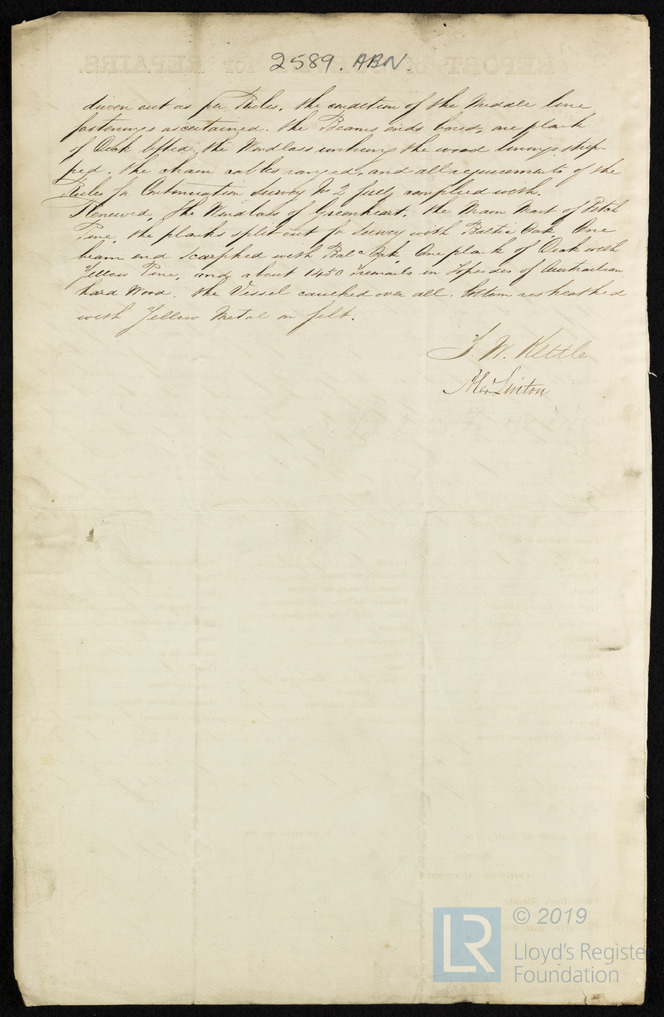 2589. ABN.
driven out as per Rules, the condition of the Middle line
fastenings ascertained. the Beams ends bored, one plank
of Oak lifted, the Windlass unhung the wood linings ship-
ped, the chain cables ranged, and all requirements of the
Rules for Continuation Survey No 2 fully complied with.
Renewed, The Windlass of Greenheart, the Main Mast of Pitch
Pine, the planks split out for Survey with Baltic Oak One
beam end scarphed with Balc Oak One plank of Oak with
Yellow Pine, and about 1450 Treenails in Topsides of Australian
hard Wood. the Vessel caulked over all. bottom resheathed
with Yellow Metal on felt.
J. W. Kettle
Alexr Linton
REPORT for REPAIRS.
LR
© 2019
Lloyd's Register
Foundation